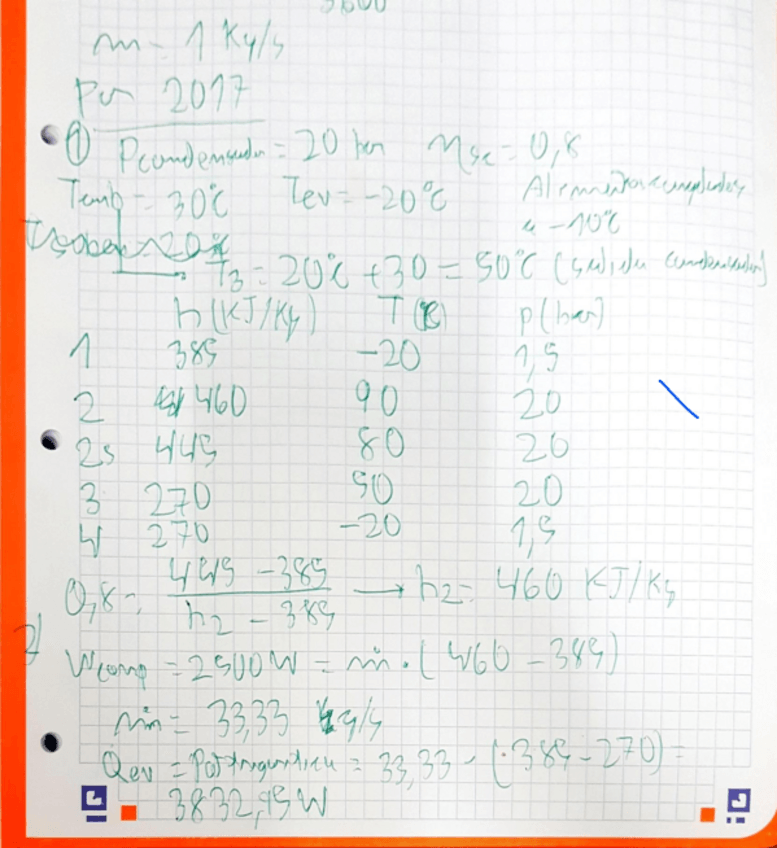 3600
m = 1 Kg/s
2017
① Pcondensador = 20 bar ηsc = 0,8
Tamb = 30°C Tev = -20°C Alimentos
a -10°C
T3 = 20°C + 30 = 50°C (salida condensador)
h (KJ/Kg) T (°C) p (bar)
1 385 -20 1,5
2 460 90 20
2s 445 80 20
3 270 50 20
4 270 -20 1,5
0,8 = 445 - 385 / h2 - 385 → h2 = 460 KJ/Kg
2) Wcomp = 2500 W = ṁ · (460 - 385)
ṁ = 33,33 g/s
Qev = Pot frigorífica = 33,33 · (385 - 270) =
3832,95 W